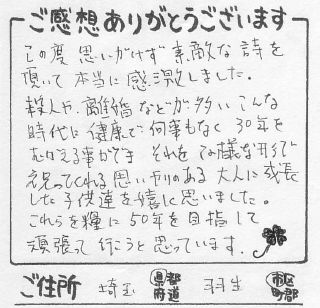 ご感想ありがとうございます
この度 思いがけず 素敵な 詩を
頂いて 本当に 感激しました。
殺人や、離婚 などが 多い こんな
時代に 健康で 何事もなく 30年を
むかえる事ができ それを この様な形で
祝ってくれる 思いやりのある 大人に 成長
した 子供達を 嬉しく思いました。
これらを 糧に 50年を 目指して
頑張って 行こうと 思っています。
ご住所 埼玉 都道府県 羽生 市区町郡